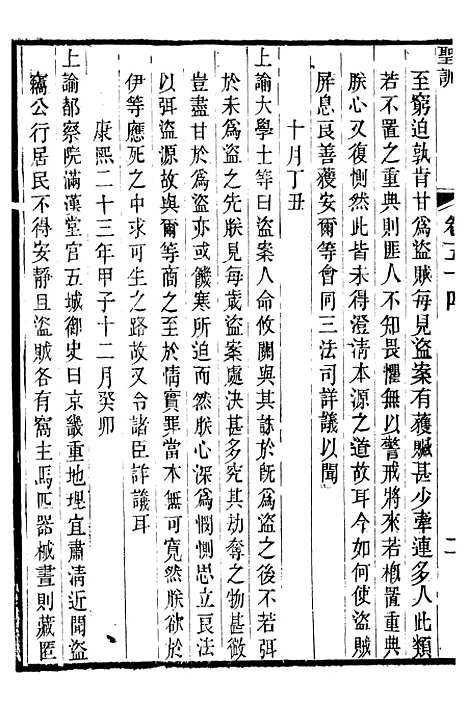 聖訓
卷五十四
二
至窮迫孰肯甘爲盜賊每見盜案有獲贓甚少牽連多人此類
若不置之重典則匪人不知畏懼無以警戒將來若槪置重典
朕心又復惻然此皆未得澄清本源之道故耳今如何使盜賊
屏息良善獲安爾等會同三法司詳議以聞
十月丁丑
上諭大學士等曰盜案人攸關與其誅於旣爲盜之後不若弭
於未爲盜之先朕見盜案處決甚多究其劫奪之物甚微
豈盡甘於爲盜亦或饑寒所迫而然朕心深爲憫惻思立良法
以弭盜源故與爾等商之至於情實罪當本無可寬然朕欲於
伊等應死之中求可生之路故又令諸臣詳議耳
康熙二十三年甲子十二月癸卯
上諭都察院滿漢堂官五城御史曰京畿重地理宜肅清近聞盜
竊公行居民不得安靜且盜賊各有窩主馬匹器械晝則藏匿